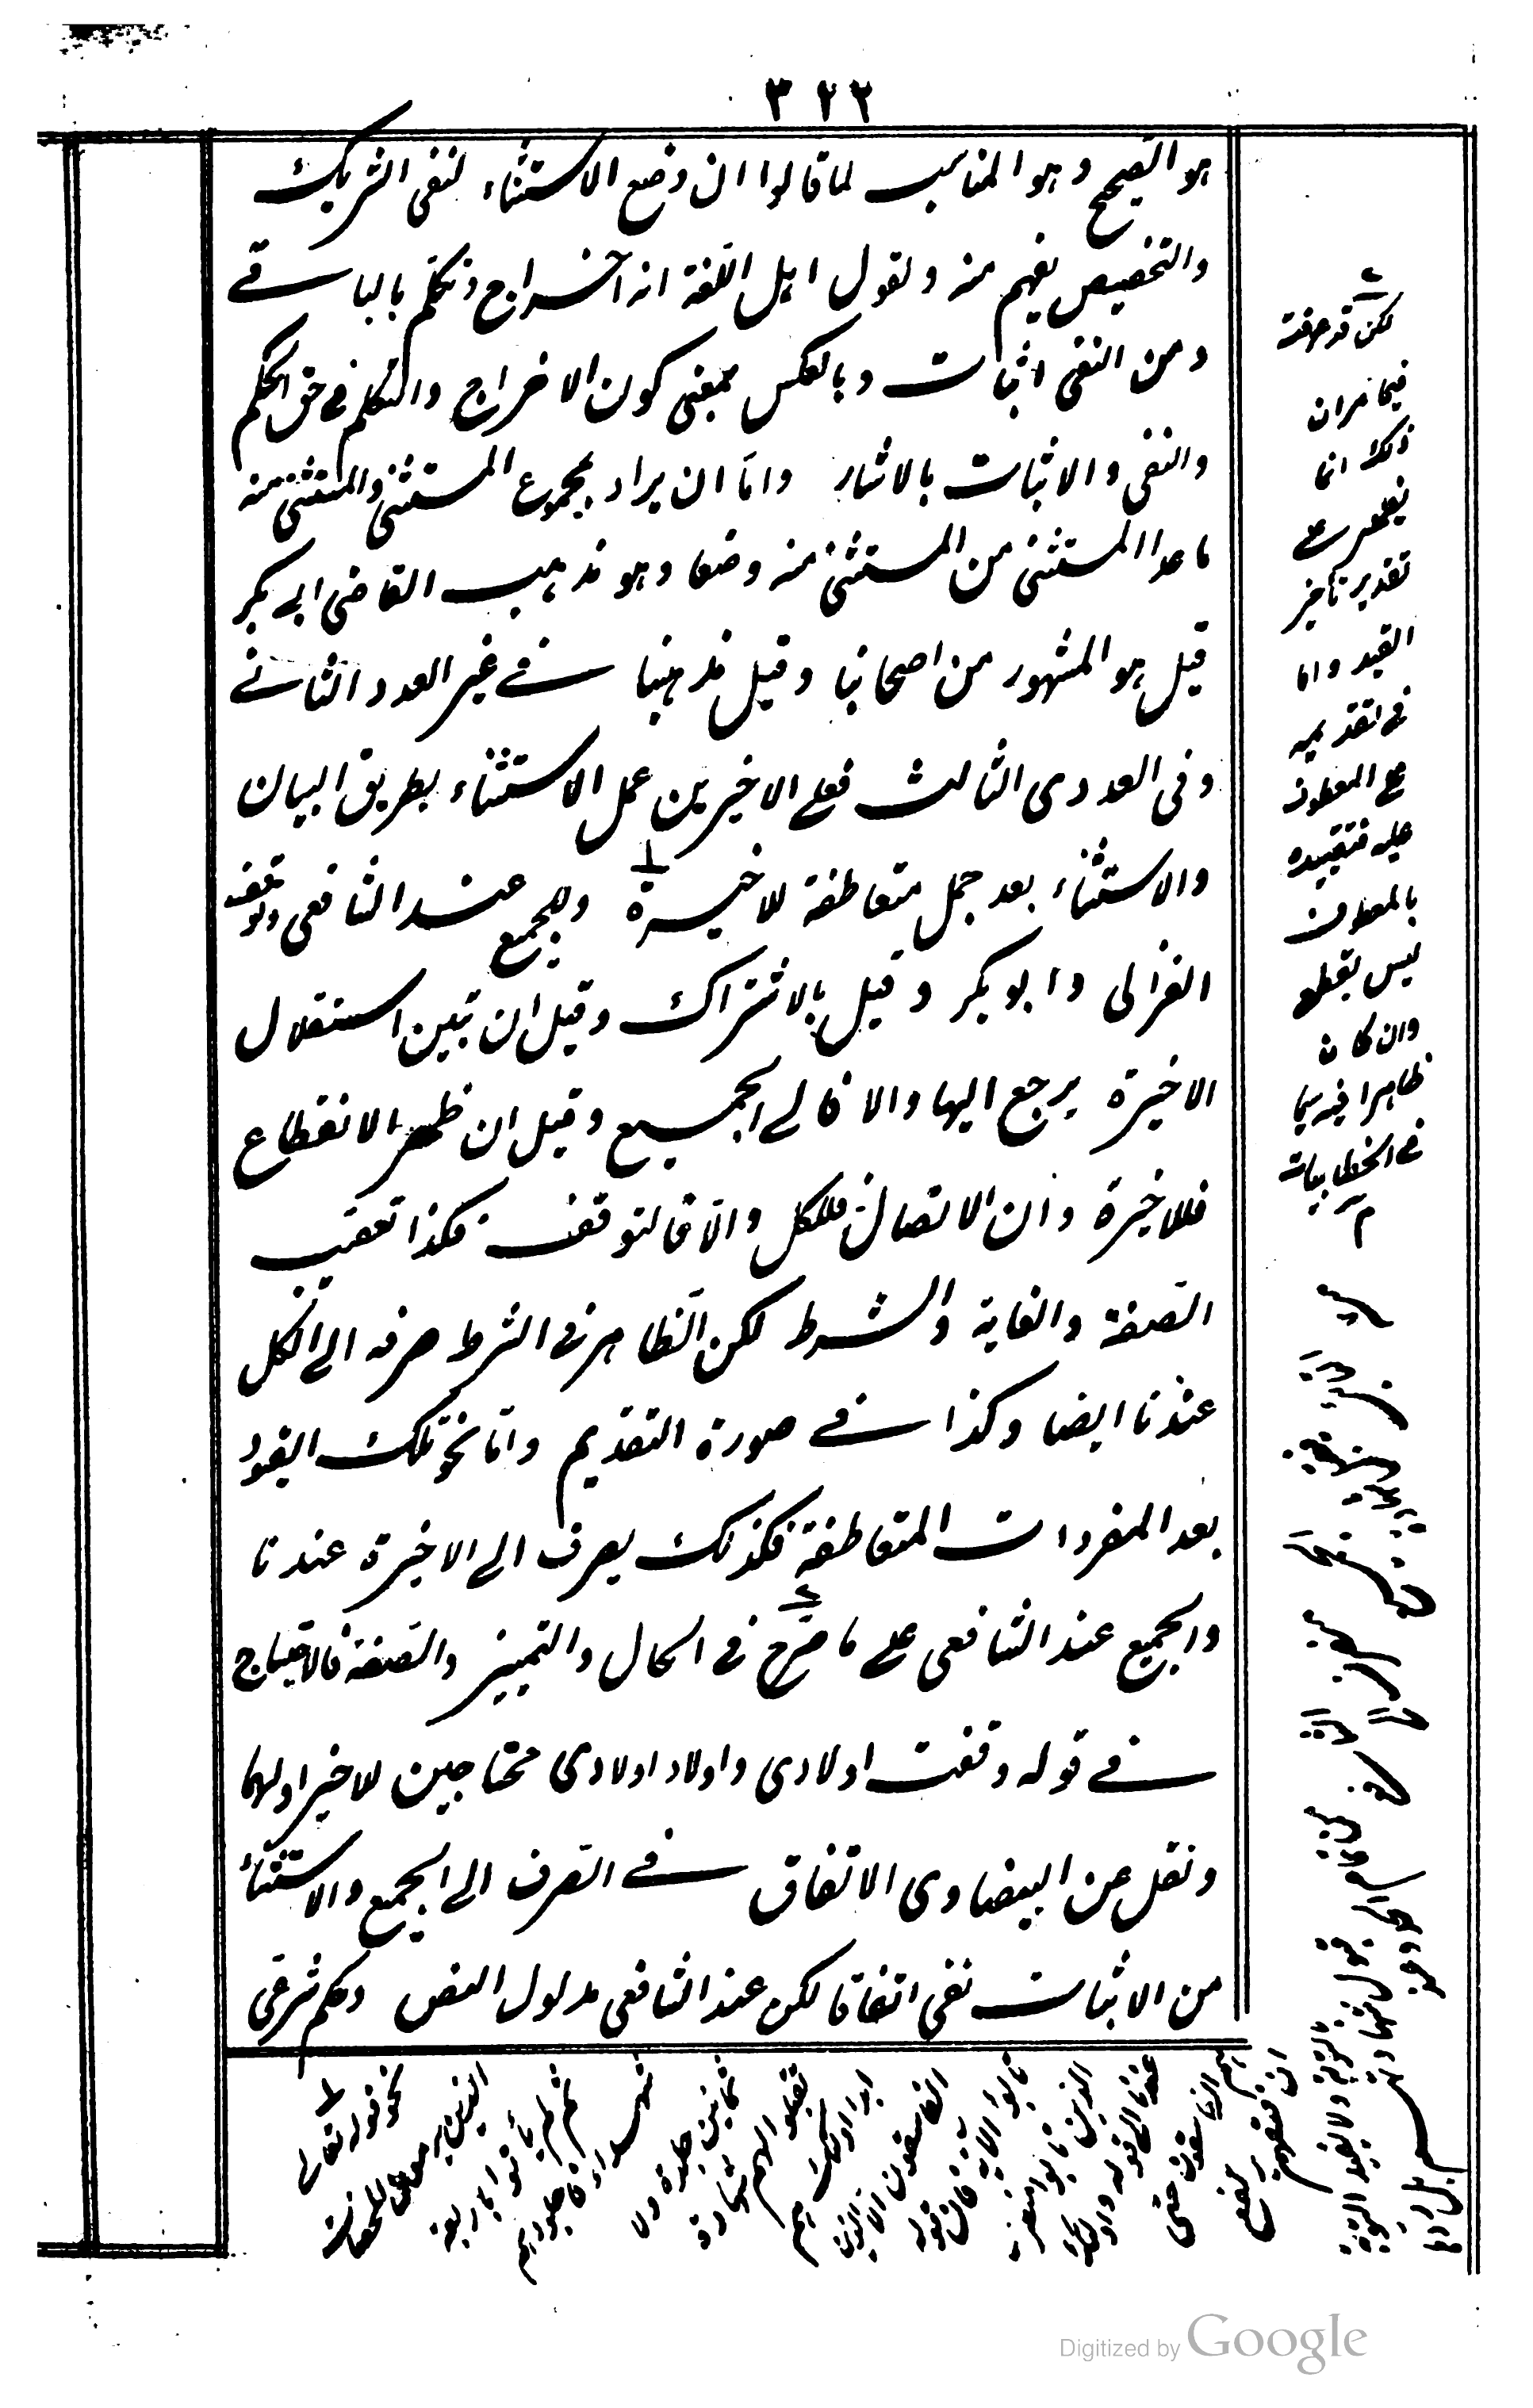 ٣٢٢
هو الصحيح وهو المناسب لما قالوا ان وضع الاستثناء لنفى الشريك
والتخصيص يفهم منه ولقول اهل اللغة انه اخراج وتكلم بالباقى
ومن النفى اثبات وبالعكس بمعنى كون الاخراج والتكلم فى حق الحكم
والنفى والاثبات بالاشارة واما ان يراد بمجموع المستثنى والمستثنى منه
ما عدا المستثنى من المستثنى منه وضعا وهو مذهب القاضى ابى بكر
قيل هو المشهور من اصحابنا وقيل مذهبنا فى غير العدد الثانى
وفى العددى الثالث فعلى الاخيرين عمل الاستثناء بطريق البيان
والاستثناء بعد جمل متعاطفة للاخيرة وللجميع عند الشافعى وتوقف
الغزالى وابو بكر وقيل بالاشتراك وقيل ان تبين استقلال
الاخيرة يرجع اليها والا فالى الجميع وقيل ان ظهر الانقطاع
فللاخيرة وان الاتصال فللكل والا فالتوقف فكذا تعقب
الصفة والغاية والشرط لكن الظاهر فى الشرط صرفه الى الكل
عندنا ايضا وكذا فى صورة التقديم واما نحو تلك القيود
بعد المفردات المتعاطفة فكذلك يصرف الى الاخيرة عندنا
والجميع عند الشافعى على ما صرح فى الحال والتمييز والصفة فالاحتياج
فى قوله وقفت اولادى واولاد اولادى محتاجين للاخير اولهما
ونقل عن البيضاوى الاتفاق فى الصرف الى الجميع والاستثناء
من الاثبات نفى اتفاقا لكن عند الشافعى مدلول النص وحكم شرعى
لكن قد عرفت
فيما مر ان
ذلك انما
يظهر على
تقدير تأخير
القيد واما
فى تقديمه
على المعطوف
عليه فتقييده
بالمعطوف
ليس بقطع
وان كان
ظاهرا فيه سيما
فى الخطابيات
م
نحو قوله تعالى
الذين يرمون المحصنات
ثم لم يأتوا باربعة
شهداء فاجلدوهم
ثمانين جلدة ولا
تقبلوا لهم شهادة
ابدا اولئك هم
الفاسقون الا الذين
تابوا الاية فان قوله
الذين تابوا منصرف
عندنا الى قوله واولئك
هم الفاسقون حتى